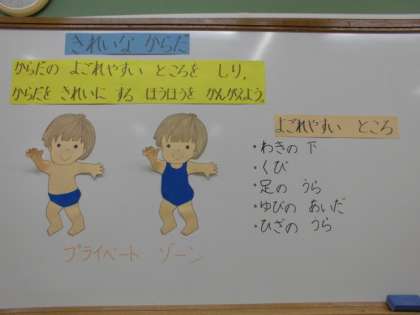 きれいな からだ
からだの よごれやすい ところを しり、
からだを きれいに する ほうほうを かんがえよう。
よごれやすい ところ
・わきの 下
・くび
・足の うら
・ゆびの あいだ
・ひざの うら
プライベート ゾーン